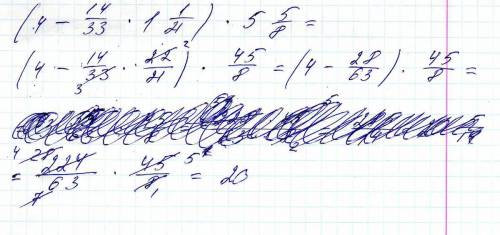 (4 - 14/33 · 1 1/21) · 5 5/8 =
(4 - 14/33 3 · 22/21 2) · 45/8 = (4 - 28/63) · 45/8 =
= 4 28 224/63 7 · 45/8 5 1 = 20